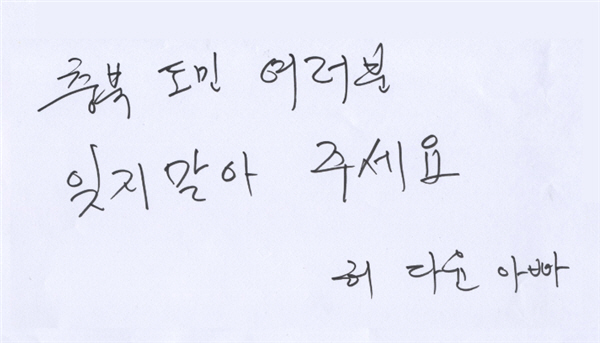 충북 도민 여러분
잊지말아 주세요
허 다윤 아빠